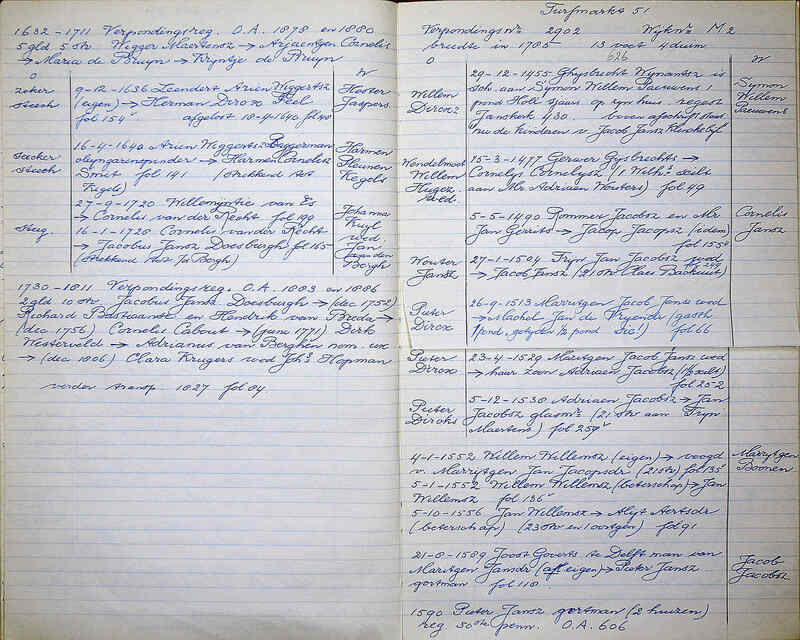 1632-1711 Verpondingsreg. O.A. 1878 en 1880
5 gld 5 str. Wigger Maertensz → Arjaentgen Cornelis
→ Maria de Bruyn → Kryntje de Bruyn
O W
zeker steech
9-12-1636 Leendert Arien Wiggertsz
(eigen) → Herman Dircx Feel
fol 154v afgelost 18-4-1640 fol 40
Hester Jaspers
seecker steech
16-4-1640 Arien Wiggertsz Baggerman
olijngarenspinder → Harmen Cornelisz
Smit fol 141 (strekkend tot
Kegels)
Harmen Pleunen Kegels
steeg
27-9-1720 Willempje van Es
→ Cornelis van der Kecht fol 199
16-1-1720 Cornelis van der Kecht
→ Jacobus Jansz Doesburgh fol 165
(strekkend tot Jo Borgh)
Johanna Kuyl wed Jan van den Borgh
1730-1811 Verpondingsreg. O.A. 1883 en 1886
2 gld 10 str. Jacobus Jansz Doesburgh → (dec 1752)
Richard Bastiaansz en Hendrik van Breda →
(dec. 1756) Cornelis Cabout → (juni 1771) Dirk
Westerveld → Adrianus van Berghen nom. ux
→ (dec 1806) Clara Krugers wed Johs Hopman
verder transp. 1827 fol 84
Turfmarkt 51
Verpondingsnr 2902 Wijknr M 2
breedte in 1785 13 voet 4 duim
626
O W
Willem Dircxz
29-12-1455 Ghysbrecht Wynantsz is
sch. aan Symon Willem Pauwens 1
pond Holl. sjaars op syn huis. regest
Janskerk 430. boven afschrift staat
nu de kinderen v Jacob Jansz
Symon Willem Pauwensz
Wendelmoet Willem Hugez wed.
15-3-1477 Gerwer Gysbrechts →
Cornelys Cornelysz (1 Wilhs scilt
aan Mr Adriaen Wouters) fol 49
5-5-1490 Rommer Jacobsz en Mr
Jan Gerrits → Jacop Jacopsz (idem)
fol 155v
Cornelis Jansz
Wouter Jansz
27-1-1504 Tryn Jan Jacobsz wed
→ Jacob Jansz (21 str Claes Backuut)
Pieter Dircx
26-9-1513 Marritgen Jacob Jans wed
→ Machtel Jan de Vryender (gasth.
1 pond, getyden ½ pond sic!) fol 66
Pieter Dircx
23-4-1529 Maritgen Jacob Jans wed
→ haar zoon Adriaen Jacobsz
fol 252
Pieter Dircks
5-12-1530 Adriaen Jacobsz → Jan
Jacobsz glasmr (21 str aan Tryn
Maertens) fol 259v
4-1-1552 Willem Willemsz (eigen) → voogd
v. Marrytgen Jan Jacopsdr (21 str) fol 135v
5-1-1552 Willem Willemsz (beterschap) → Jan
Willemsz fol 136v
5-10-1556 Jan Willemsz → Alyt Aertsdr
(beterschap) (23 str en 1 oortgen) fol 91
Marrytgen Boonen
21-8-1589 Joost Goverts te Delft man van
Maritgen Jansdr (afl. eigen) → Pieter Jansz
gortman fol 118
Jacob Jacobsz
1590 Pieter Jansz gortman (2 huizen)
reg. 50ste penn. O.A. 606